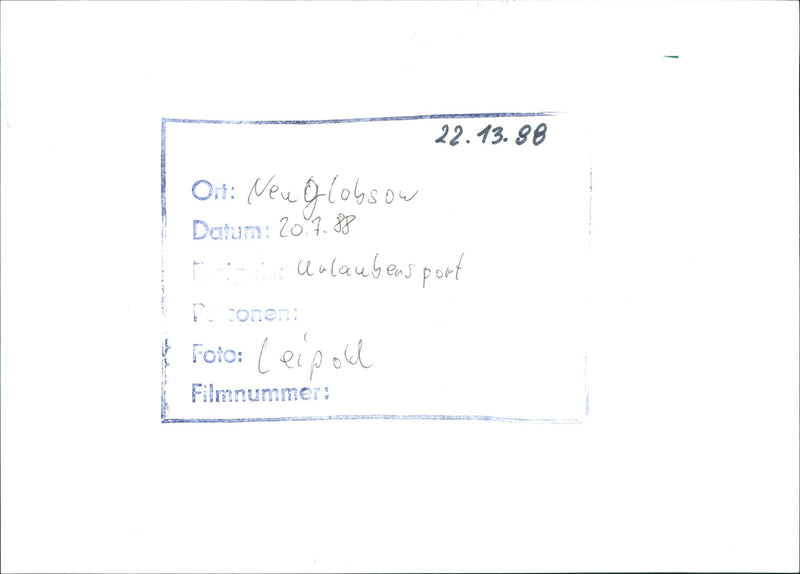 22.13.88
Ort: Neu Globsow
Datum: 20.7.88
Urlaubersport
Personen:
Foto: Leipold
Filmnummer: